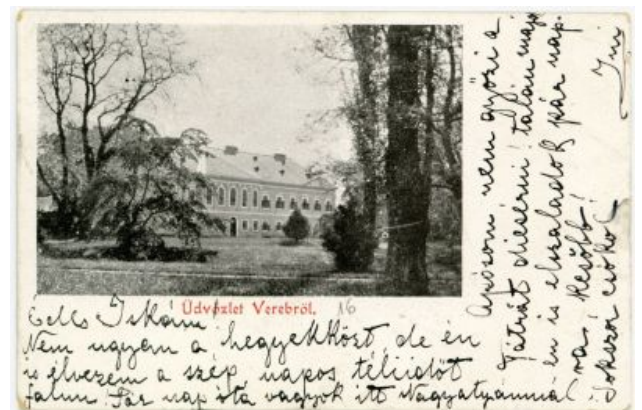 Üdvözlet Verebről.
16
Édes Iskám!
Nem ugyan a hegyekközt de én
is élvezem a szép napos téliidőt
falun. Pár nap óta vagyok itt Nagyatyámnál.
Apósom nem győzi a
Tátrát dicsérni! talán majd
én is elszaladok pár nap-
ra később!
Sokszor csókol